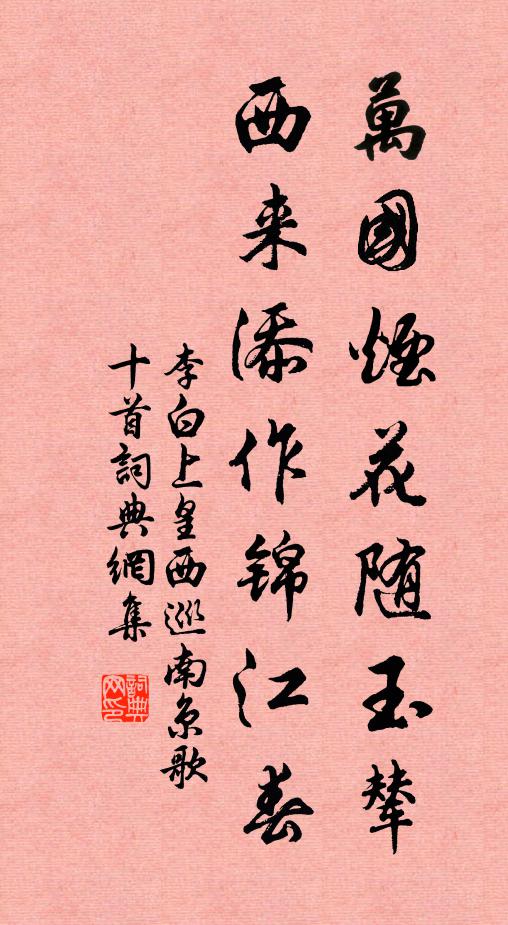 萬國煙花随玉輦
西来添作锦江春
李白上皇西巡南京歌
十首詞典網集
詞典网印